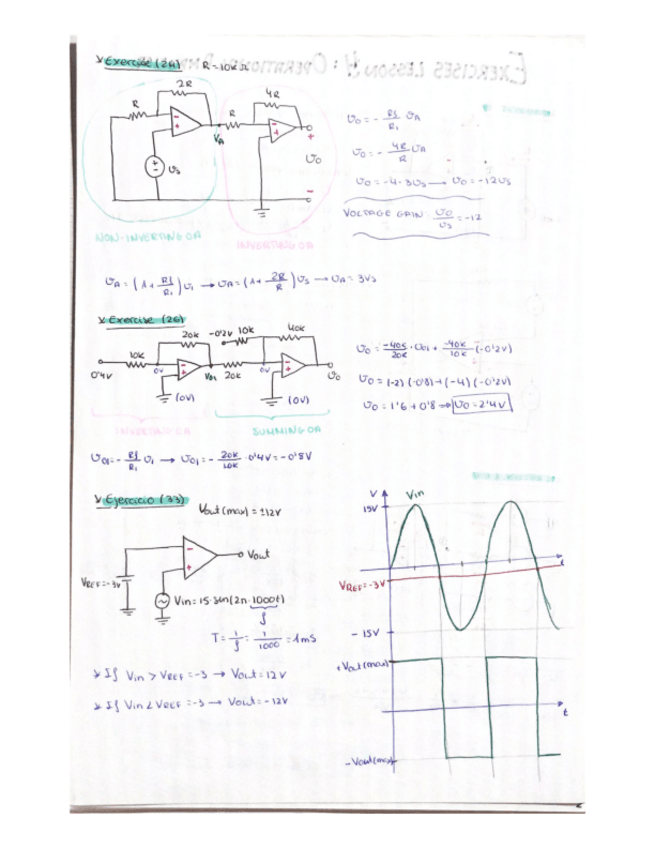 Exercise (24) R=10kΩ
2R
4R
R
R
VA
Vs
Vo
NON-INVERTING OA
INVERTING OA
Vo = - Rf/R1 VA
Vo = - 4R/R VA
Vo = -4·3Vs → Vo = -12Vs
VOLTAGE GAIN Vo/Vs = -12
VA = (1+ Rf/R1) Vi → VA = (1+ 2R/R) Vs → VA = 3Vs
Exercise (26)
20k -0'2V 10k 40k
10k
0'4V
0V
Vo1
20k
0V
Vo
(0V)
(0V)
INVERTING OA
SUMMING OA
Vo = -40k/20k · Vo1 + -40k/10k (-0'2V)
Vo = (-2) (-0'8) + (-4) (-0'2V)
Vo = 1'6 + 0'8 → Vo = 2'4V
Vo1 = - Rf/R1 Vi → Vo1 = - 20k/10k · 0'4V = -0'8V
Ejercicio (33)
Vout (max) = ±12V
Vout
VREF = -3V
Vin = 15·sen(2π·1000t)
f
T = 1/f = 1/1000 = 1mS
* If Vin > VREF = -3 → Vout = 12V
* If Vin < VREF = -3 → Vout = -12V
V
Vin
15V
t
VREF = -3V
-15V
+Vout (max)
t
-Vout (max)